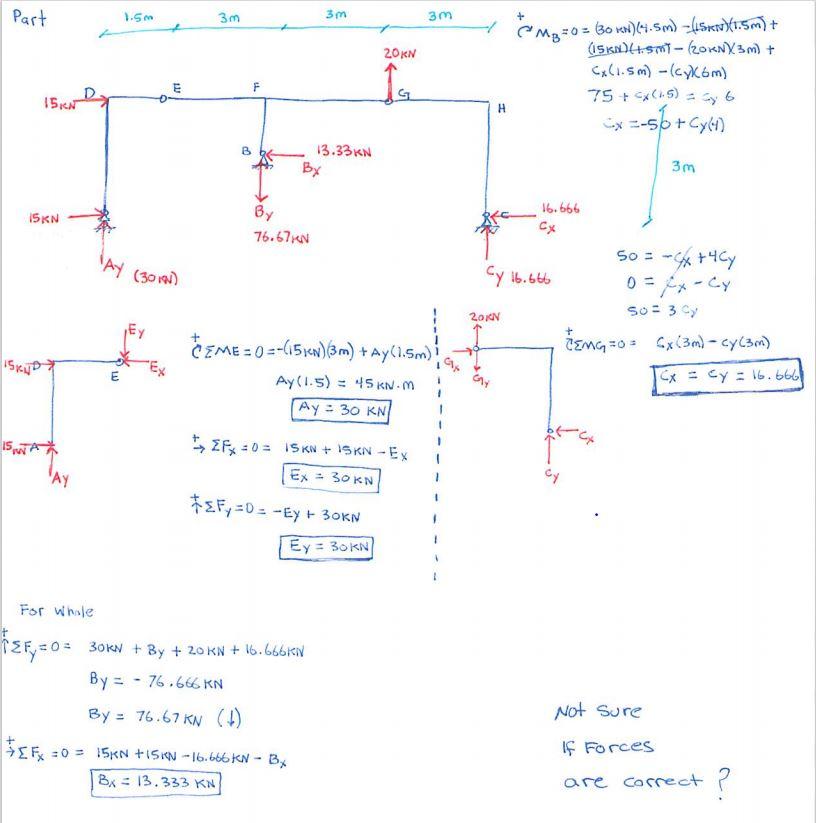 Part
1.5m 3m 3m 3m
20KN
15KN D E F G H
B 13.33KN
Bx
15KN
By
76.67KN
Ay (30KN)
C 16.666
Cx
Cy 16.666
3m
+ MB=0= (30KN)(4.5m) -(15KN)(1.5m)+
(15KN)(1.5m) - (20KN)(3m) +
Cx(1.5m) -(Cy)(6m)
75 + Cx(1.5) = Cy 6
Cx =-50+Cy(4)
50 = -Cx+4Cy
0 = Cx - Cy
50 = 3 Cy
15KN D
Ey
Ex
E
15KN A
Ay
+ ΣME=0=-(15KN)(3m) + Ay(1.5m)
Ay(1.5) = 45KN·m
Ay = 30 KN
+→ ΣFx=0= 15KN + 15KN - Ex
Ex = 30KN
+↑ΣFy=0= -Ey + 30KN
Ey = 30KN
20KN
Gx
Gy
Cx
Cy
+ ΣMG=0= Cx(3m) - Cy(3m)
Cx = Cy = 16.666
For Whole
+↑ΣFy=0= 30KN + By + 20KN + 16.666KN
By = - 76.666KN
By = 76.67KN (↓)
+→ΣFx=0= 15KN+15KN-16.666KN - Bx
Bx = 13.333KN
Not Sure
If Forces
are correct ?